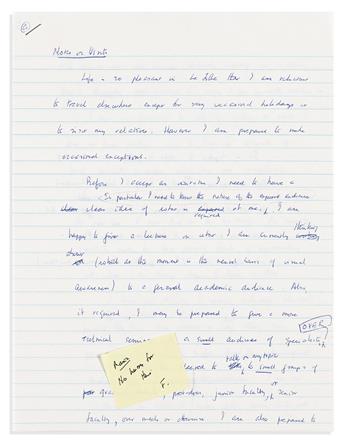 Notes on Visits
Life is so pleasant in La Jolla that I am reluctant
to travel elsewhere except for very occasional holidays or
to visit my relatives. However I am prepared to make
occasional exceptions.
Before I accept an invitation I need to have a
In particular I need to know the nature of the expected audience
clear idea of what is required of me. I am
happy to give a lecture on what I am currently thinking
about (which at this moment is the neural basis of visual
awareness) to a general academic audience. Also,
if required, I may be prepared to give a more
OVER
technical seminar a small audience of specialists
talk on any topic
to small groups of
postdocs, junior faculty, or senior
faculty, over meals or otherwise. I am also prepared to
No
for
F.